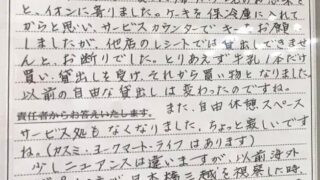 と、イオンに寄りました。ケーキを保冷庫に入れて
からと思い、サービスカウンターでキーをお願
しましたが、他店のレシートでは貸出しできませ
んと、お断りでした。とりあえず牛乳1本だけ
買い、貸出しを受け、それから買い物となりました
以前の自由な貸出しは変わったのですね。
責任者からお答えいたします。
また、自由休憩スペース
サービス処もなくなりました、ちょっと寂しいです
ね。(カスミ、ヨークマート・ライフはあります)
少しニュアンスは違いますが、以前海外
日本橋三越を視察した時、